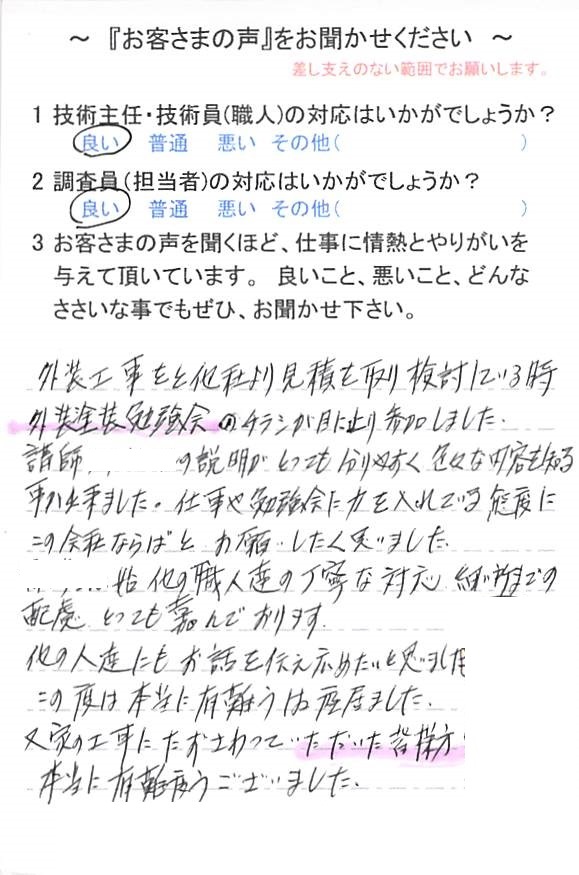 ～ 『お客さまの声』をお聞かせください ～
差し支えのない範囲でお願いします。
1 技術主任・技術員(職人)の対応はいかがでしょうか？
良い 普通 悪い その他( )
2 調査員(担当者)の対応はいかがでしょうか？
良い 普通 悪い その他( )
3 お客さまの声を聞くほど、仕事に情熱とやりがいを
与えて頂いています。 良いこと、悪いこと、どんな
ささいな事でもぜひ、お聞かせ下さい。
外装工事をと他社より見積を取り検討している時
外装塗装勉強会のチラシが目に止り参加しました.
講師 の説明がとっても分りやすく色々な内容も知る
事が出来ました。仕事や勉強会に力を入れている態度に
この会社ならばと お願いしたく思いました.
始 他の職人達の丁寧な対応 細い所までの
配慮 とっても喜んでおります.
他の人達にもお話を伝え広めたいと思いました
この度は本当に有難うは座居ました.
又家の工事にたおさわっていただいた皆様方
本当に有難うございました.